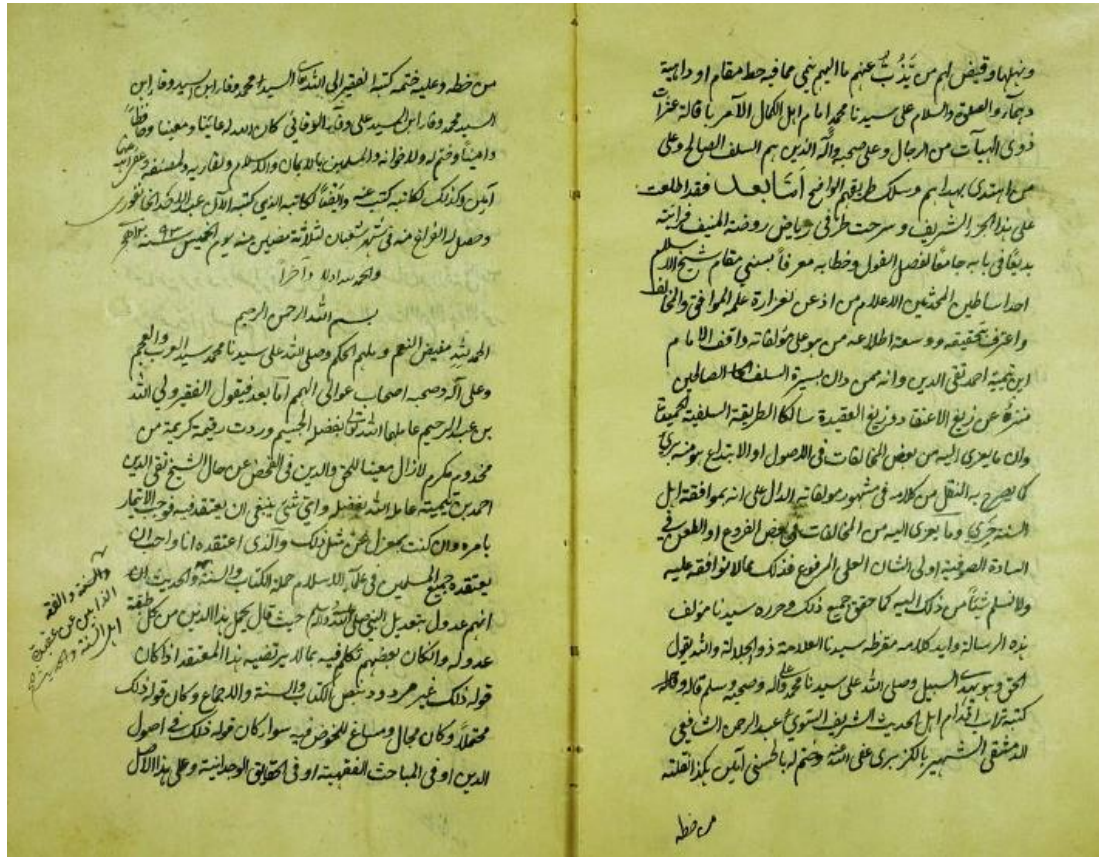 ونهلها وقيض لهم من يذب عنهم ما اليهم ينمي مما فيه حط مقام او داهية
والصلوة والسلام على سيدنا محمد امام اهل الكمال الآمر باقالة عثرات
ذوى الهيآت من الرجال وعلى صحبه وآله الذين هم السلف الصالح وعلى
من اهتدى بهداهم وسلك طريقهم الواضح امّا بعد فقد اطلعت
على هذا الجزء الشريف وسرحت طرفى رياض روضة المنيف فرائته
بديعًا فى بابه جامعًا لفصل القول وخطابه معرفاً بسني مقام شيخ الاسلام
احد اساطين المحدثين الاعلام من اذعن لغزارة علمه الموافق والمخالف
واعترف بتحقيقه ووسعة اطلاعه من هو على مؤلفاته واقف الامام
ابن تيمية احمد تقى الدين وانه ممن دان بسيرة السلف الصالحين
منزهً عن زيغ الاعتقاد وزيغ العقيدة سالكا الطريقة السلفية الحميدة
وان ما يعزى اليه من بعض المخالفات فى الاصول او الابتداع هو منه برئ
كما يصرح به النقل من كلامه فى مشهور مولفاته الدال على انه بموافقة اهل
السنة حرى وما يعزى اليه من المخالفات فى بعض الفروع او الطعن فى
السادة الصوفية اولى الشان العلى المرفوع فذلك مما لا نوافقه عليه
ولا نسلم شيئاً من ذلك اليه كما حقق جميع ذلك وحرره سيدنا مولف
هذه الرسالة وايد كلامه مقرظه سيدنا العلامة ذو الجلالة والله يقول
الحق وهو يهدى السبيل وصلى الله على سيدنا محمد وعلى آله وصحبه وسلم قاله
كتبه تراب اقدام اهل الحديث الشريف النبوي عبد الرحمن الشافعي
الدمشقى الشهير بالكزبرى عفى الله عنه وختم له بالحسنى آمين هكذا نقلته
من خطه
من خطه وعليه ختمه كتبه الفقير الى الله تعالى السيد محمد وفا ابن السيد وفا ابن
السيد محمد وفا ابن السيد على وفا الوفائي كان الله لعاينا ومعينا وحافظاً
واميناً وختم له ولاخوانه والمسلمين بالايمان والاسلام ولقاريه ولمصنفه وغفر
آمين وكذلك لكاتبه كتب عنه وايضاً لكاتبه الذى كتبه الآن عبد الاحد
وحصل له الفراغ منه فى شهر شعبان لثلاثة مضين منه يوم الخميس سنة ١٢٩٣ هجر
والحمد لله اولا وآخراً
بسم الله الرحمن الرحيم
الحمد لله مفيض النعم وملهم الحكم وصلى الله على سيدنا محمد سيد العرب والعجم
وعلى آله وصحبه اصحاب عوالى الهمم اما بعد فيقول الفقير ولي الله
بن عبد الرحيم عاملهما الله تعالى بفضل الجسيم وردت رقيمة كريمة من
مخدوم مكرم لازال معينا للحق والدين فى الفحص عن حال الشيخ تقى الدين
احمد بن تيمية عامله الله بفضله واى شئ ينبغى ان يعتقد فيه فوجب الائتمار
بامره وان كنت بمعزل عن مثل ذلك والذى اعتقده انا واحب ان
يعتقده جميع المسلمين فى علماء الاسلام حملة الكتاب والسنة والحديث
انهم عدول بتعديل النبي صلى الله عليه وسلم حيث قال يحمل هذا الدين من كل طبقة
عدوله وان كان بعضهم تكلم فيه بما لا يرتضيه هذا المعتقد اذا كان
قوله ذلك غير مردود بنص الكتاب والسنة والاجماع وكان قوله ذلك
محتملاً وكان مجال ومساغ للخوض فيه سوا كان قوله ذلك فى اصول
الدين او فى المباحث الفقهية او فى الحقايق الوجدانية وعلى هذا الاصل
والسنة والفقه
الذابين عن عقيدة
اهل السنة والحديث